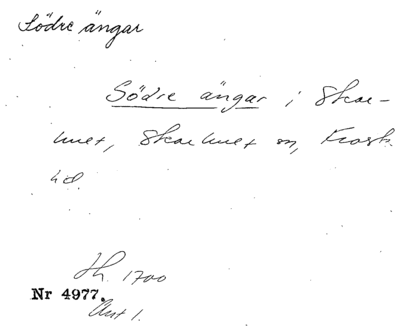 Södre ängar
Södre ängar i Skar-
hult, Skarhult sn, Frosta
hd.
Jb. 1700
Nr 4977.
Ant 1.